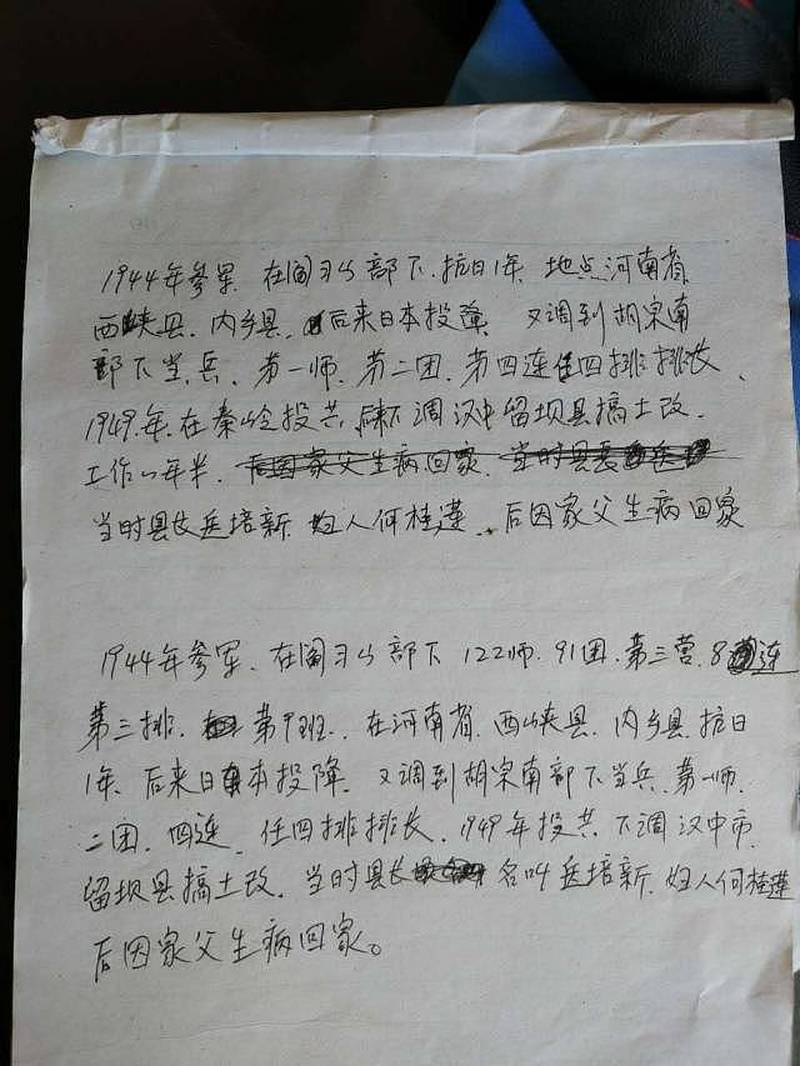 1944年参军.在阎习山部下.抗日1年.地点河南省.
西峡县.内乡县.后来日本投降.又调到胡宗南
部下当兵.第一师.第二团.第四连任四排排长、
1949.年.在秦岭投共.下调汉中留坝县搞土改.
工作一年半.后因家父生病回家.当时县长
当时县长岳培新.妇人何桂莲.后因家父生病回家
1944年参军.在阎习山部下122师.91团.第三营.8连
第三排.第9班.在河南省.西峡县.内乡县.抗日
1年.后来日本投降.又调到胡宗南部下当兵.第一师.
二团.四连.任四排排长.1949年投共.下调汉中市.
留坝县搞土改.当时县长名叫岳培新.妇人何桂莲
后因家父生病回家。